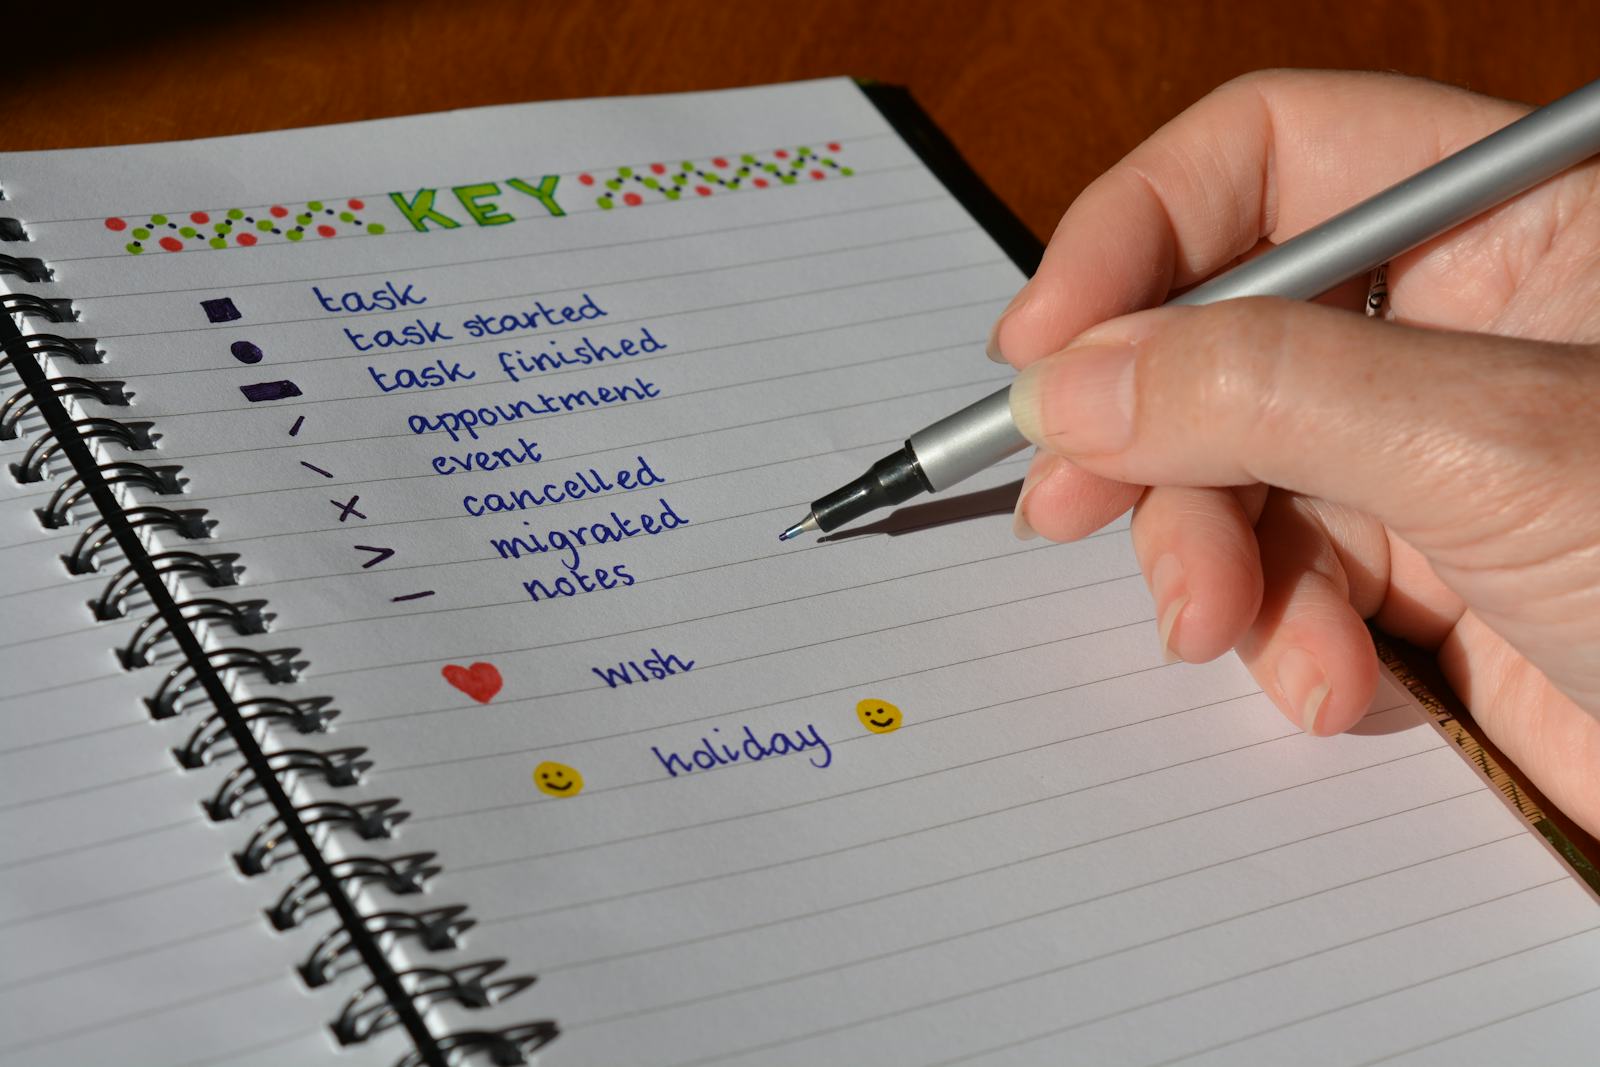 KEY
task
task started
task finished
appointment
event
cancelled
migrated
notes
wish
holiday